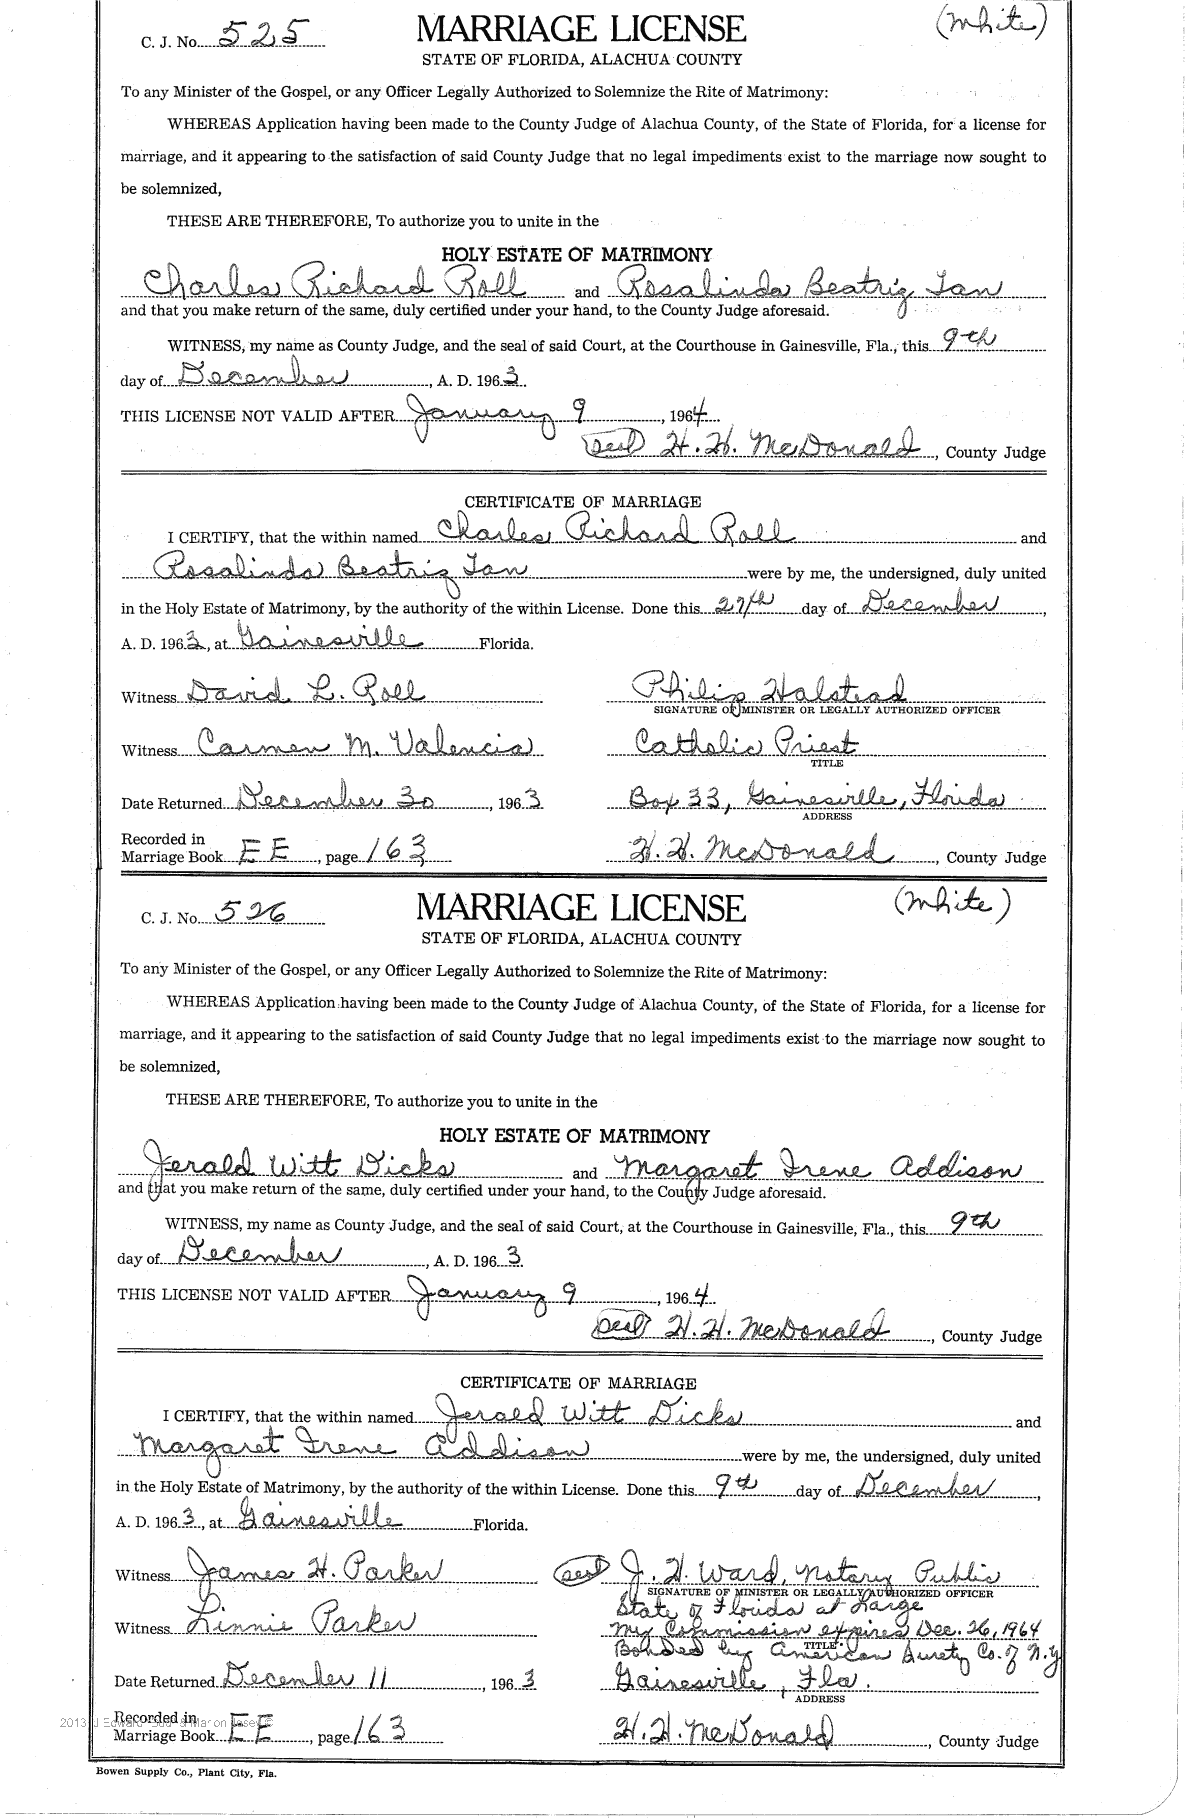 C. J. No. 525 MARRIAGE LICENSE (White)
STATE OF FLORIDA, ALACHUA COUNTY
To any Minister of the Gospel, or any Officer Legally Authorized to Solemnize the Rite of Matrimony:
WHEREAS Application having been made to the County Judge of Alachua County, of the State of Florida, for a license for
marriage, and it appearing to the satisfaction of said County Judge that no legal impediments exist to the marriage now sought to
be solemnized,
THESE ARE THEREFORE, To authorize you to unite in the
HOLY ESTATE OF MATRIMONY
Charles Richard Roll and Rosalinda Beatriz Tan
and that you make return of the same, duly certified under your hand, to the County Judge aforesaid.
WITNESS, my name as County Judge, and the seal of said Court, at the Courthouse in Gainesville, Fla., this 9th
day of December, A. D. 1963.
THIS LICENSE NOT VALID AFTER January 9, 1964
seal H. H. McDonald, County Judge
CERTIFICATE OF MARRIAGE
I CERTIFY, that the within named Charles Richard Roll and
Rosalinda Beatriz Tan were by me, the undersigned, duly united
in the Holy Estate of Matrimony, by the authority of the within License. Done this 27th day of December,
A. D. 1963, at Gainesville Florida.
Witness David L. Roll Philip Halstead
SIGNATURE OF MINISTER OR LEGALLY AUTHORIZED OFFICER
Witness Carmen M. Valencia Catholic Priest
TITLE
Date Returned December 30, 1963 Box 33, Gainesville, Florida
ADDRESS
Recorded in
Marriage Book EE, page 163 H. H. McDonald, County Judge
C. J. No. 526 MARRIAGE LICENSE (White)
STATE OF FLORIDA, ALACHUA COUNTY
To any Minister of the Gospel, or any Officer Legally Authorized to Solemnize the Rite of Matrimony:
WHEREAS Application having been made to the County Judge of Alachua County, of the State of Florida, for a license for
marriage, and it appearing to the satisfaction of said County Judge that no legal impediments exist to the marriage now sought to
be solemnized,
THESE ARE THEREFORE, To authorize you to unite in the
HOLY ESTATE OF MATRIMONY
Jerald Witt Dicks and Margaret Irene Addison
and that you make return of the same, duly certified under your hand, to the County Judge aforesaid.
WITNESS, my name as County Judge, and the seal of said Court, at the Courthouse in Gainesville, Fla., this 9th
day of December, A. D. 1963.
THIS LICENSE NOT VALID AFTER January 9, 1964.
seal H. H. McDonald, County Judge
CERTIFICATE OF MARRIAGE
I CERTIFY, that the within named Jerald Witt Dicks and
Margaret Irene Addison were by me, the undersigned, duly united
in the Holy Estate of Matrimony, by the authority of the within License. Done this 9th day of December,
A. D. 1963, at Gainesville Florida.
Witness James H. Parker seal J. H. Ward, Notary Public
SIGNATURE OF MINISTER OR LEGALLY AUTHORIZED OFFICER
State of Florida at Large
Witness Linnie Parker My Commission expires Dec. 26, 1964
TITLE
Bonded by American Surety Co. of N.Y
Date Returned December 11, 1963 Gainesville, Fla.
ADDRESS
Recorded in
Marriage Book EE, page 163 H. H. McDonald, County Judge
Bowen Supply Co., Plant City, Fla.